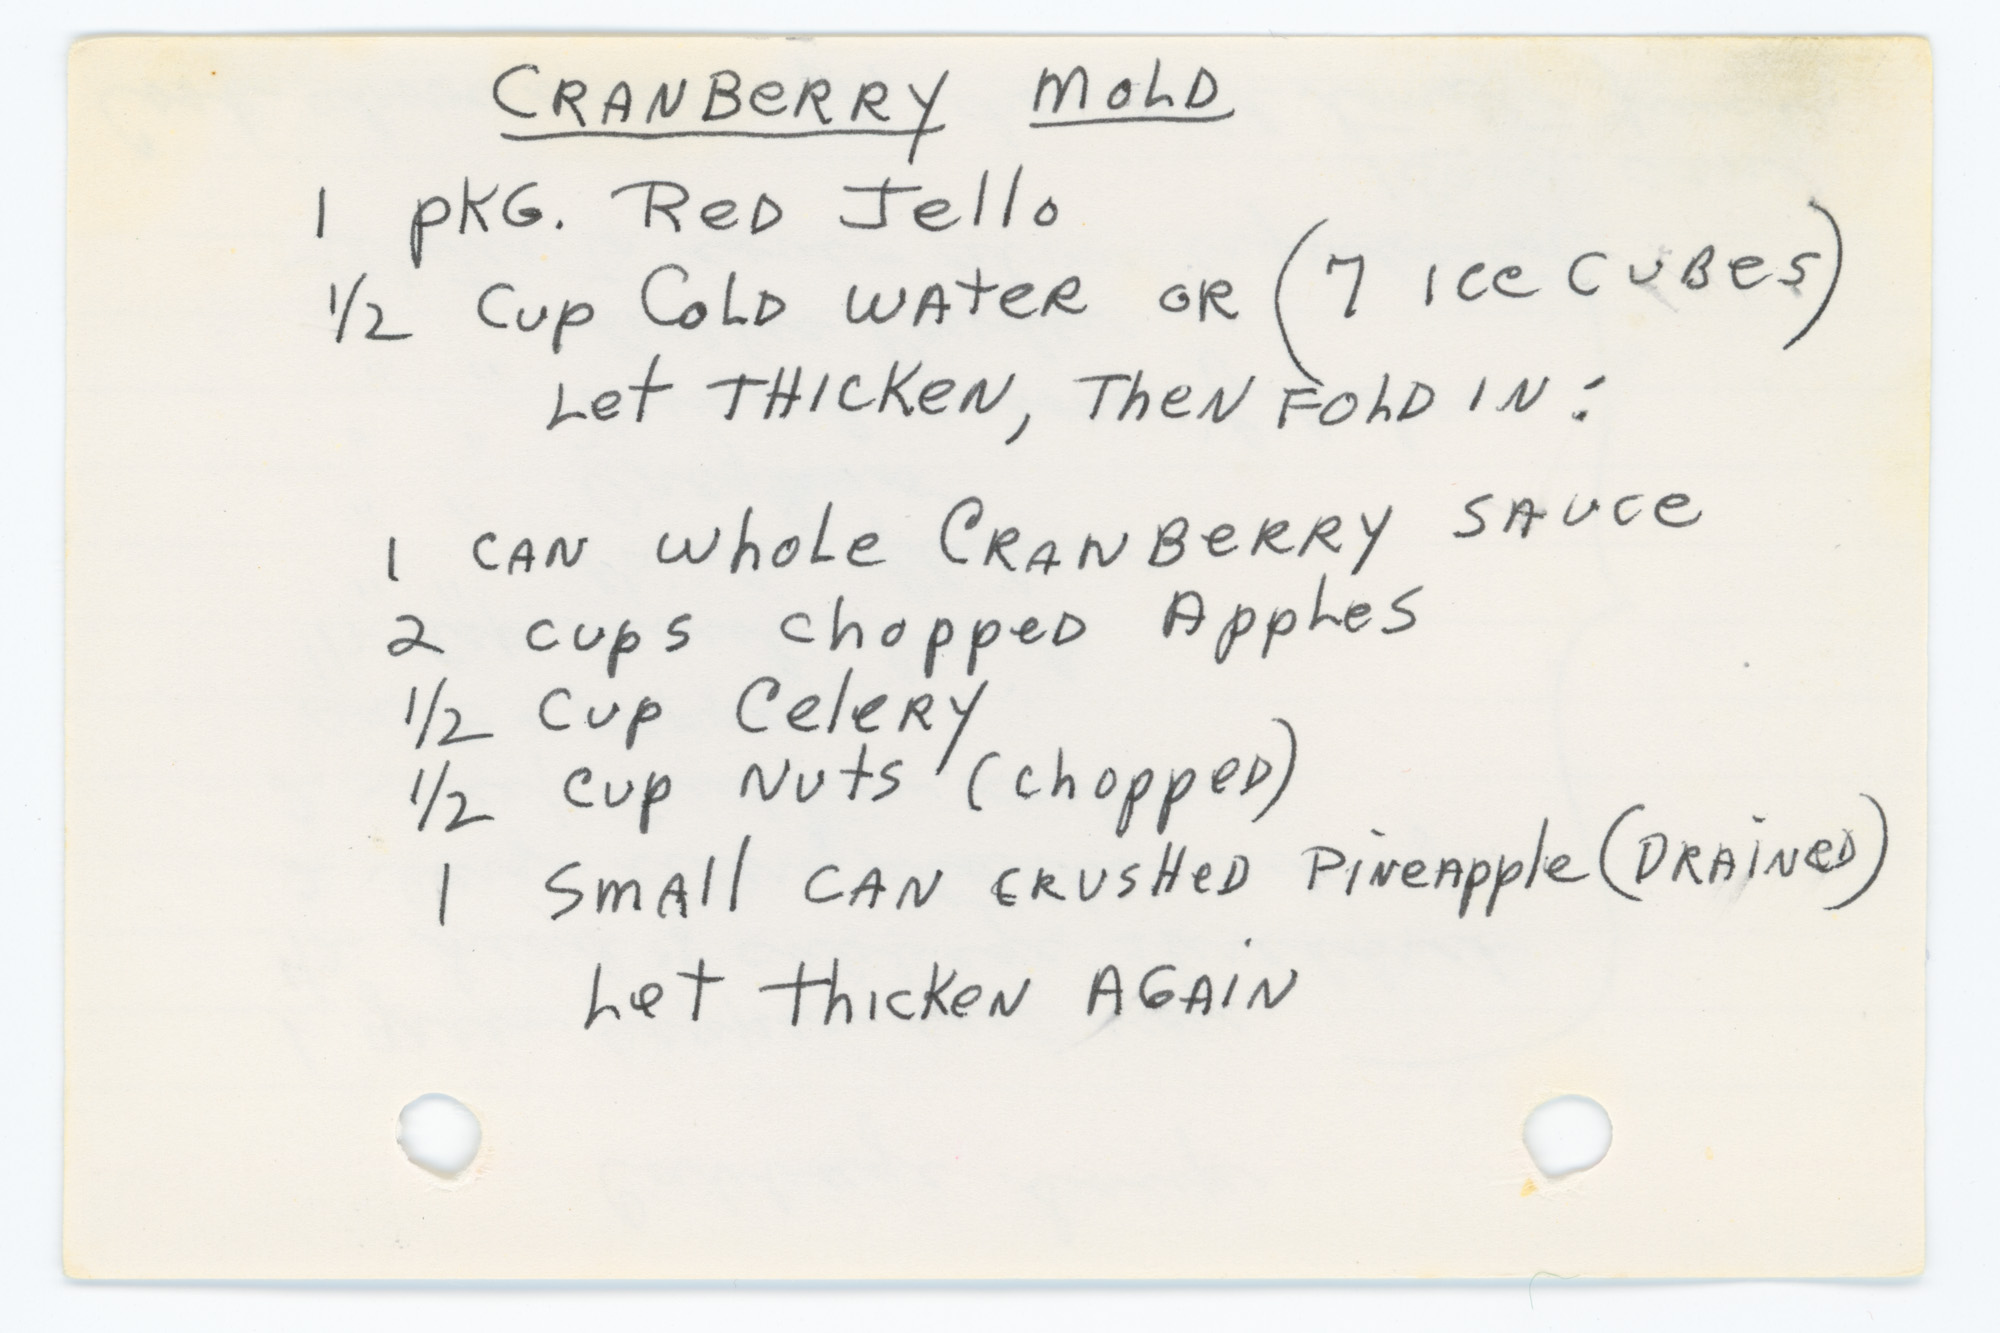 CRANBeRRY MOLD
1 pKG. ReD Jello
1/2 Cup COLD WAteR OR (7 ICe CUBeS)
Let THICKeN, TheN FOLD IN:
1 CAN whoLe CRANBeRRY SAUCe
2 cups choppeD AppLes
1/2 Cup CeleRy
1/2 Cup Nuts (choppeD)
1 SmAll CAN CRUSHeD PiNeApple (DRAiNeD)
Let thickeN AGAiN